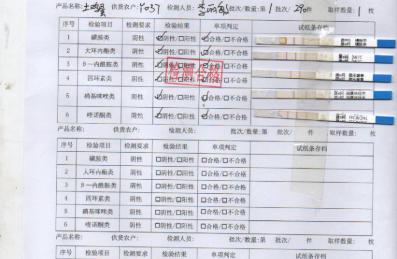 产品名称: 土鸡蛋 供货农户: Y037 检测人员: 批次/数量:第 1 批次/ 270 件 取样数量: 1 枚
序号 检验项目 检测要求 检验结果 单项判定 试纸条存档
1 磺胺类 阴性 ☑阴性/☐阳性 ☑合格/☐不合格
2 大环内酯类 阴性 ☑阴性/☐阳性 ☑合格/☐不合格
3 β一内酰胺类 阴性 ☑阴性/☐阳性 ☑合格/☐不合格
4 四环素类 阴性 ☑阴性/☐阳性 ☑合格/☐不合格
5 硝基咪唑类 阴性 ☑阴性/☐阳性 ☑合格/☐不合格
6 喹诺酮类 阴性 ☑阴性/☐阳性 ☑合格/☐不合格
检测合格
产品名称: 供货农户: 检测人员: 批次/数量:第 批次/ 件 取样数量: 枚
序号 检验项目 检测要求 检验结果 单项判定 试纸条存档
1 磺胺类 阴性 ☐阴性/☐阳性 ☐合格/☐不合格
2 大环内酯类 阴性 ☐阴性/☐阳性 ☐合格/☐不合格
3 β一内酰胺类 阴性 ☐阴性/☐阳性 ☐合格/☐不合格
4 四环素类 阴性 ☐阴性/☐阳性 ☐合格/☐不合格
5 硝基咪唑类 阴性 ☐阴性/☐阳性 ☐合格/☐不合格
6 喹诺酮类 阴性 ☐阴性/☐阳性 ☐合格/☐不合格
产品名称: 供货农户: 检测人员: 批次/数量:第 批次/ 件 取样数量: 枚
序号 检验项目 检测要求 检验结果 单项判定 试纸条存档